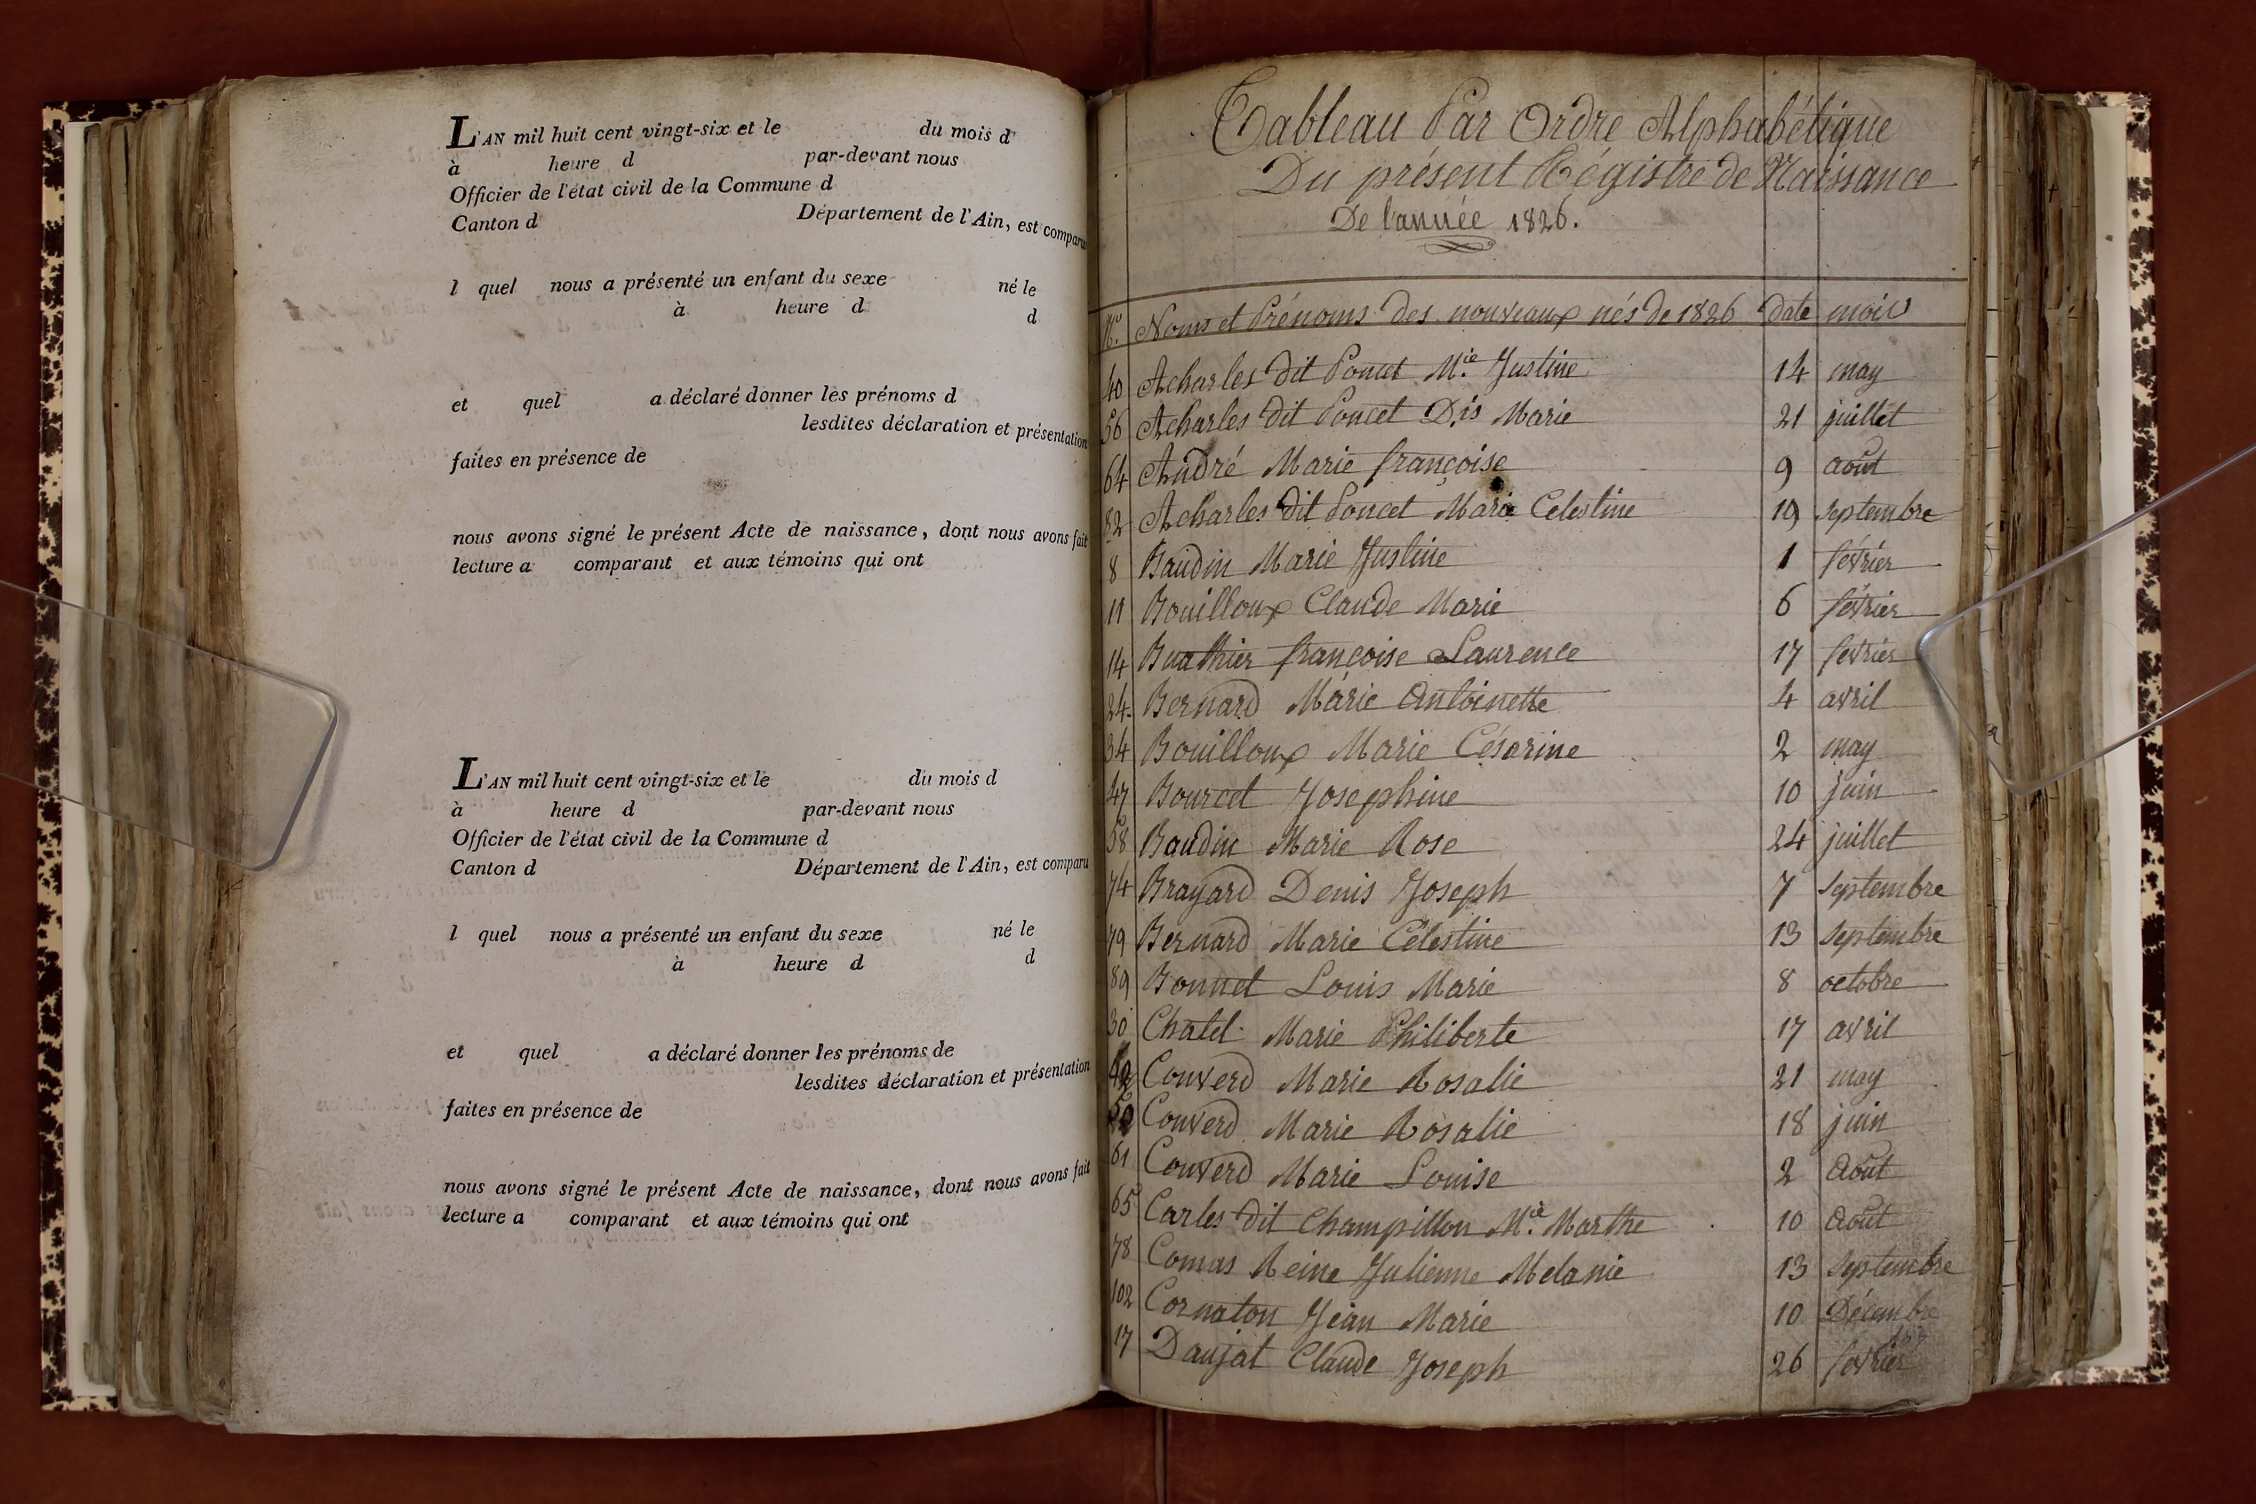 L'AN mil huit cent vingt-six et le du mois d
à heure d par-devant nous
Officier de l'état civil de la Commune d
Canton d Département de l'Ain, est comparu
l quel nous a présenté un enfant du sexe né le
à heure d d
et quel a déclaré donner les prénoms d
lesdites déclaration et présentation
faites en présence de
nous avons signé le présent Acte de naissance, dont nous avons fait
lecture a comparant et aux témoins qui ont
L'AN mil huit cent vingt-six et le du mois d
à heure d par-devant nous
Officier de l'état civil de la Commune d
Canton d Département de l'Ain, est comparu
l quel nous a présenté un enfant du sexe né le
à heure d d
et quel a déclaré donner les prénoms de
lesdites déclaration et présentation
faites en présence de
nous avons signé le présent Acte de naissance, dont nous avons fait
lecture a comparant et aux témoins qui ont
Tableau Par Ordre Alphabétique
Du présent Régistre de Naissance
De l'année 1826.
N.º Noms et Prénoms des nouveaux nés de 1826 date mois
40 Acharles dit Poncet M.ie Justine 14 may
56 Acharles dit Poncet D.is Marie 21 juillet
64 André Marie françoise 9 août
82 Acharles dit Poncet Marie Celestine 19 septembre
8 Baudin Marie Justine 1 février
11 Bouilloux Claude Marie 6 février
14 Buathier françoise Laurence 17 février
24 Bernard Marie Antoinette 4 avril
34 Bouilloux Marie Césarine 2 may
47 Bourcet Josephine 10 juin
58 Baudin Marie Rose 24 juillet
74 Brayard Denis Joseph 7 septembre
79 Bernard Marie Célestine 13 septembre
89 Bonnet Louis Marie 8 octobre
30 Chatel Marie Philiberte 17 avril
42 Converd Marie Rosalie 21 may
Converd Marie Rosalie 18 juin
61 Converd Marie Louise 2 Août
65 Carles dit Champillon M.ie Marthe 10 Août
78 Comas Reine Julienne Melanie 13 septembre
102 Cornaton Jean Marie 10 Décembre
17 Daujat Claude Joseph 26 février